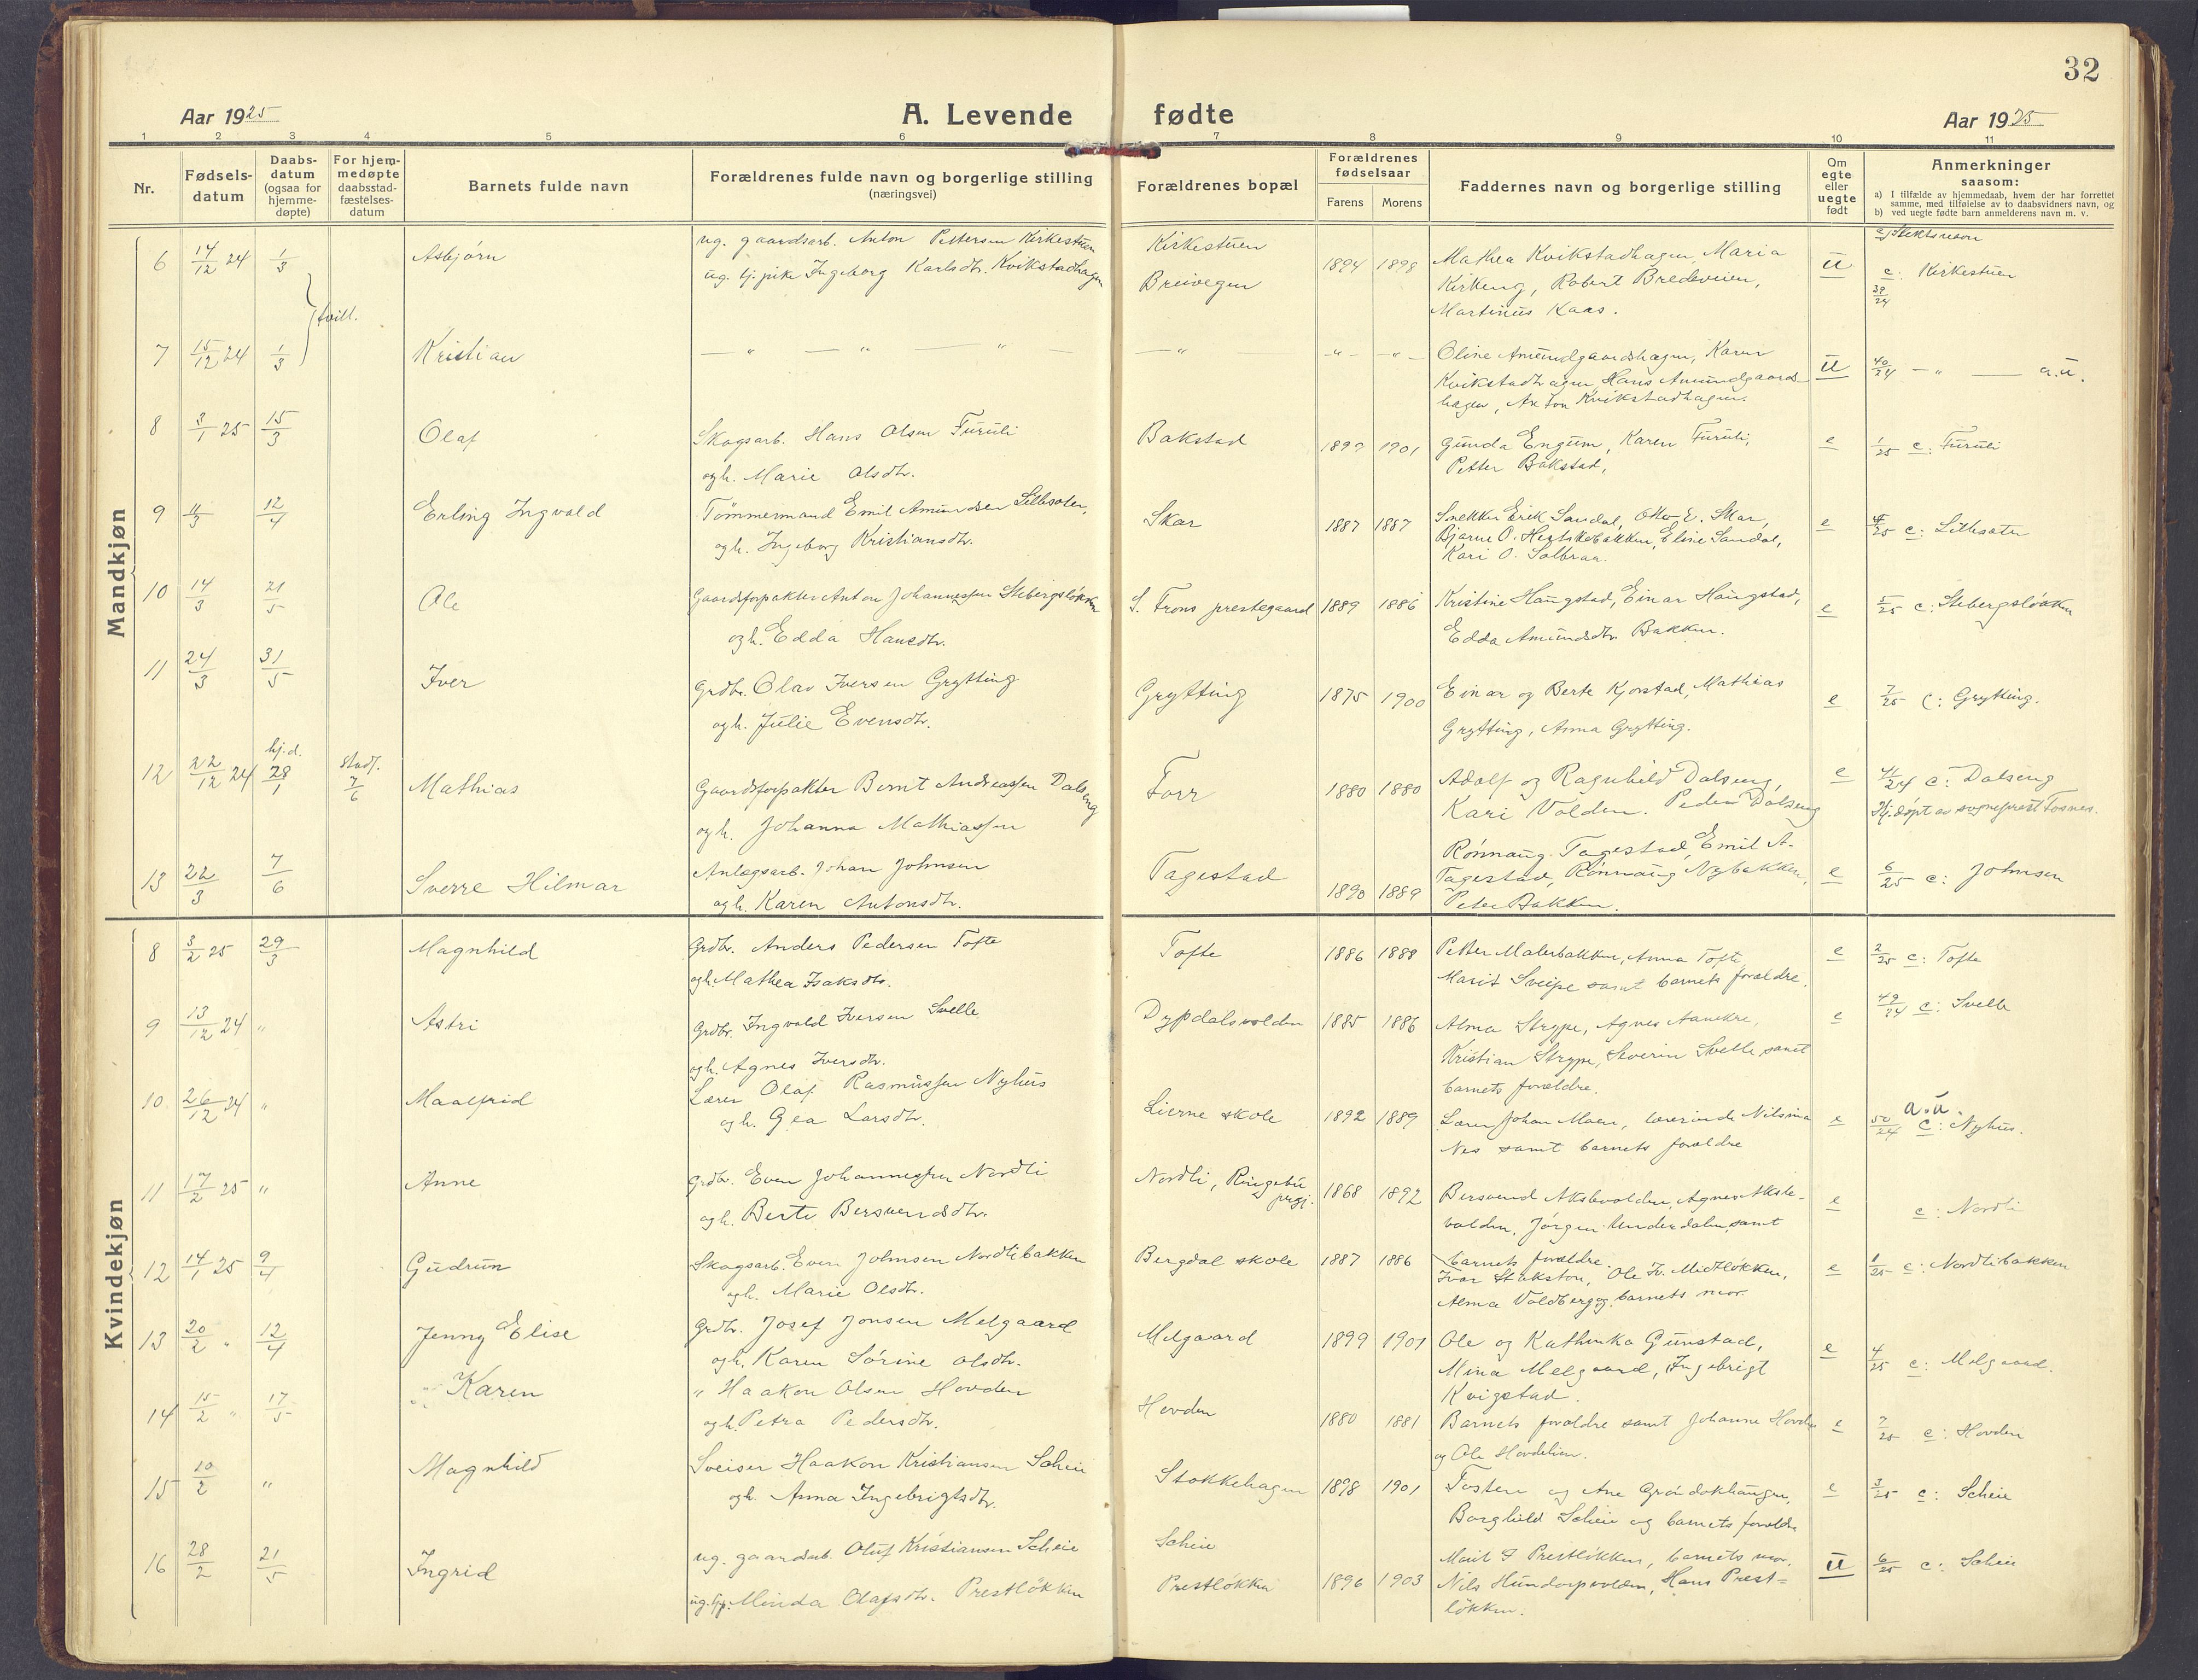 32
Aar 1925
A. Levende fødte
Aar 1925
1 2 3 4 5 6 7 8 9 10 11
Nr.
Fødselsdatum
Daabsdatum (ogsaa for hjemmedøpte)
For hjemmedøpte daabsstadfæstelsesdatum
Barnets fulde navn
Forældrenes fulde navn og borgerlige stilling (næringsvei)
Forældrenes bopæl
Forældrenes fødselsaar
Farens Morens
Faddernes navn og borgerlige stilling
Om egte eller uegte født
Anmerkninger saasom:
a) I tilfælde av hjemmedaab, hvem der har forrettet samme, med tilføielse av to daabsvidners navn, og
b) ved uegte fødte barn anmelderens navn m. v.
Mandkjøn
6 14/12 24 1/3 Asbjørn
ug. gaardsarb. Anton Pettersen Kirkestuen
ug. tj.pike Ingeborg Karlsdtr. Kvikstadhagen
Kirkestuen
Breivegen
1894 1898
Mathea Kvikstadhagen, Maria
Kirkeng, Robert Bredeveien,
Martinus Kaas.
U
c: Kirkestuen
39/24
tvill.
7 15/12 24 1/3 Kristian
— " — " — " —
— " — - " - - " -
Oline Amundgaardshagen, Karen
Kvikstadhagen, Hans Amundgaards-
hagen, Anton Kvikstadhagen.
U
40/24 — " — a.u.
8 3/1 25 15/3 Olaf
Skogsarb. Hans Olsen Furuli
ogh. Marie Olsdtr.
Bakstad
1899 1901
Gunda Engum, Karen Furuli,
Petter Bakstad,
e
1/25 c: Furuli
9 11/3 12/4 Erling Ingvald
Tømmermand Emil Amundsen Sillesoter,
ogh. Ingeborg Kristiansdtr.
Skar
1887 1887
Snekker Erik Sandal, Otto E. Skar,
Bjarne O. Eline Sandal,
Kari O. Solbraa.
e
4/25 c:
10 14/3 21/5 Ole
Gaardsforpakter Anton Johannessen Stebergsløkken
ogh. Edda Hansdtr.
S. Frons prestegaard
1889 1886
Kristine Haugstad, Einar Haugstad,
Edda Amundsdtr. Bakken.
e
5/25 c: Stebergsløkken
11 24/3 31/5 Iver
Grdbr. Olav Iversen Grytting
ogh. Julie Evensdtr.
Grytting
1875 1900
Einar og Berte Kjorstad, Mathias
Grytting, Anna Grytting.
e
7/25 c: Grytting.
12 22/12 24 hj.d. 28/1 stadf. 7/6 Mathias
Gaardsforpakter Bernt Andreassen Dalseng
ogh. Johanna Mathiassen
Forr
1880 1880
Adolf og Ragnhild Dalseng,
Kari Volden. Peder Dalseng
e
41/24 c: Dalseng
Hj. døpt av sogneprest Fosnes.
13 22/3 7/6 Sverre Hilmar
Anlægsarb. Johan Johnsen
ogh. Karen Antonsdtr.
Tagestad
1890 1889
Rønnaug Tagestad, Emil A.
Tagestad, Rønnaug Nybakken,
Peter Bakken.
e
6/25 c: Johnsen
Kvindekjøn
8 3/2 25 29/3 Magnhild
Grdbr. Anders Pedersen Tofte
ogh. Mathea Isaksdtr.
Tofte
1886 1888
Petter Malerbakken, Anna Tofte,
Marit Sveipe samt barnets forældre.
e
2/25 c: Tofte
9 13/12 24 " Astri
Grdbr. Ingvald Iversen Svelle
ogh. Agnes Iversdtr.
Dypdalsvolden
1885 1886
Alma Strype, Agnes Aanekre,
Kristian Strype, Severin Svelle samt
barnets forældre.
e
49/24 c: Svelle
10 26/12 24 " Maalfrid
Lærer Olaf Rasmussen Nyhus
ogh. Gea Larsdtr.
Lierne skole
1892 1889
Lærer Johan Moen, lærerinde Nilsina
Nes samt barnets forældre
e
a.u.
50/24 c: Nyhus.
11 17/2 25 " Anne
Grdbr. Even Johannessen Nordli
ogh. Berte Bersvendsdtr.
Nordli, Ringebu
prgj.
1868 1892
Bersvend Akslevolden, Agnes Aksle-
volden, Jørgen Underdalen, samt
barnets forældre.
e
c: Nordli
12 14/1 25 9/4 Gudrun
Skogsarb. Even Johnsen Nordlibakken
ogh. Marie Olsdtr.
Bergdal skole
1887 1886
Ivar Stukston, Ole Iv. Midtløkken,
Alma Voldberg og barnets mor.
e
1/25 c: Nordlibakken
13 20/2 " 12/4 Jenny Elise
Grdbr. Josef Jonsen Melgaard
ogh. Karen Sørine Olsdtr.
Melgaard
1899 1901
Ole og Kathinka Gunstad,
Mina Melgaard, Ingebrigt
Kvigstad.
e
4/25 c: Melgaard.
14 15/2 " 17/5 Karen
" Haakon Olsen Hovden
ogh. Petra Pedersdtr.
Hovden
1880 1881
Barnets forældre samt Johanne Hovden
og Ole Hovdelien.
e
7/25 c: Hovden
15 10/2 " Magnhild
Sveiser Haakon Kristiansen Scheie
ogh. Anna Ingebrigtsdtr.
Stokkehagen
1898 1901
Tosten og Ane Grøndokhaugen,
Borghild Scheie og barnets forældre
e
3/25 c: Scheie
16 28/2 21/5 Ingrid
ug. gaardsarb. Oluf Kristiansen Scheie
ug. tjp. Minda Olafsdtr. Prestløkken
Scheie
Prestløkken
1896 1903
Marit G Prestløkken, barnets mor,
Nils Hundorpvolden, Hans Prest-
løkken.
U
6/25 c: Scheie